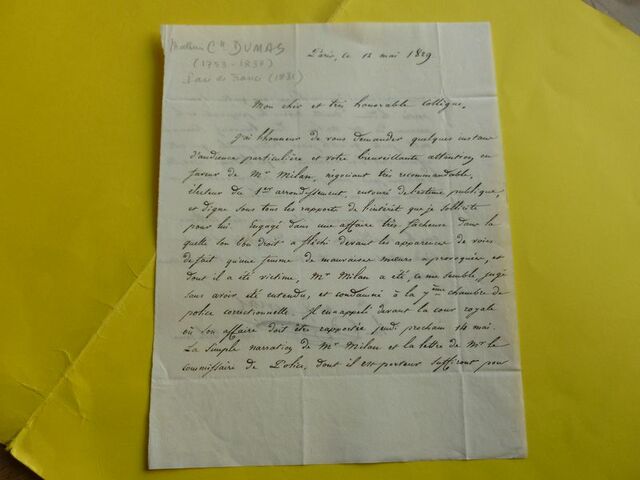 Mathieu Cte DUMAS
(1753-1837)
Pair de France (1831)
Paris, le 12 mai 1829
Mon cher et très honorable Collègue,
J'ai l'honneur de vous demander quelques instans
d'audience particulière et votre bienveillante attention en
faveur de Mr Milan, négociant très recommandable,
électeur du 1er arrondissement, entouré de l'estime publique,
et digne sous tous les rapports de l'intérêt que je sollicite
pour lui. Engagé dans une affaire très fâcheuse dans la
quelle son bon droit a fléchi devant les apparences de voies
de fait qu'une femme de mauvaises mœurs a provoquées, et
dont il a été victime, Mr Milan a été, ce me semble, jugé
sans avoir été entendu, et condamné à la 7ème chambre de
police correctionnelle. Il en appelle devant la cour royale
où son affaire doit être rapportée jeudi prochain 14 mai.
La simple narration de Mr Milan et la lettre de Mr le
commissaire de Police, dont il est porteur suffiront pour